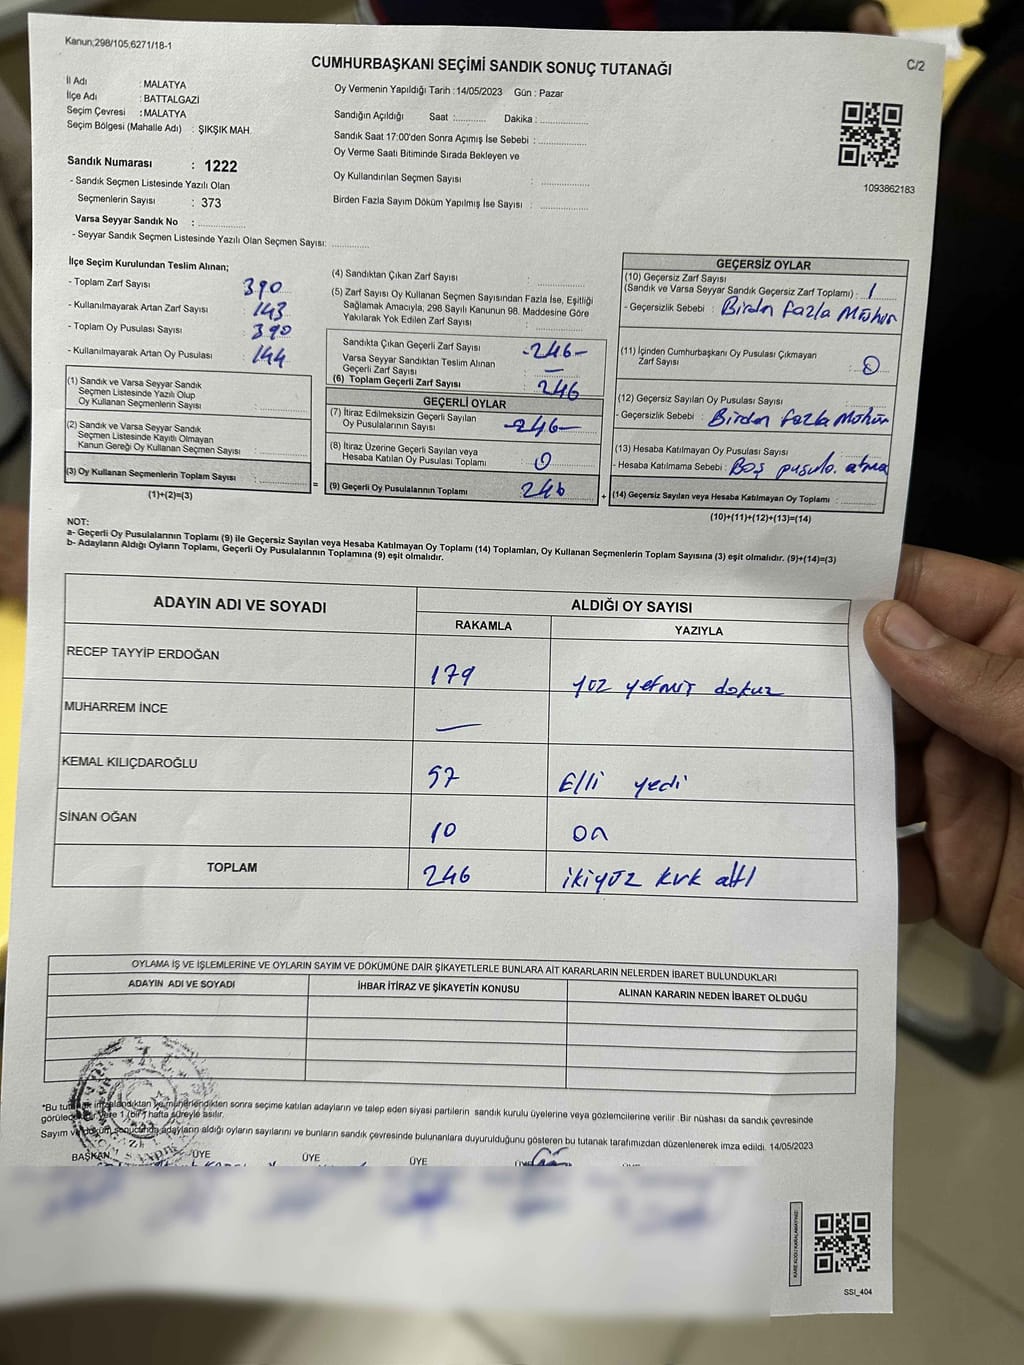 Kanun;298/105,6271/18-1
C/2
CUMHURBAŞKANI SEÇİMİ SANDIK SONUÇ TUTANAĞI
İl Adı : MALATYA
İlçe Adı : BATTALGAZİ
Seçim Çevresi : MALATYA
Seçim Bölgesi (Mahalle Adı) : ŞIKŞIK MAH.
Oy Vermenin Yapıldığı Tarih : 14/05/2023 Gün : Pazar
Sandığın Açıldığı Saat :.......... Dakika : ...............
Sandık Saat 17:00'den Sonra Açımış İse Sebebi : ...............
Oy Verme Saati Bitiminde Sırada Bekleyen ve
Oy Kullandırılan Seçmen Sayısı : ...............
Birden Fazla Sayım Döküm Yapılmış İse Sayısı : ...............
1093862183
Sandık Numarası : 1222
- Sandık Seçmen Listesinde Yazılı Olan
Seçmenlerin Sayısı : 373
Varsa Seyyar Sandık No : ...............
- Seyyar Sandık Seçmen Listesinde Yazılı Olan Seçmen Sayısı: ............
İlçe Seçim Kurulundan Teslim Alınan;
- Toplam Zarf Sayısı : 390
- Kullanılmayarak Artan Zarf Sayısı : 143
- Toplam Oy Pusulası Sayısı : 390
- Kullanılmayarak Artan Oy Pusulası : 144
(1) Sandık ve Varsa Seyyar Sandık
Seçmen Listesinde Yazılı Olup
Oy Kullanan Seçmenlerin Sayısı : ...............
(2) Sandık ve Varsa Seyyar Sandık
Seçmen Listesinde Kayıtlı Olmayan
Kanun Gereği Oy Kullanan Seçmen Sayısı : ...............
(3) Oy Kullanan Seçmenlerin Toplam Sayısı : ...............
(1)+(2)=(3)
(4) Sandıktan Çıkan Zarf Sayısı : ...............
(5) Zarf Sayısı Oy Kullanan Seçmen Sayısından Fazla İse, Eşitliği
Sağlamak Amacıyla, 298 Sayılı Kanunun 98. Maddesine Göre
Yakılarak Yok Edilen Zarf Sayısı : ...............
Sandıkta Çıkan Geçerli Zarf Sayısı : -246-
Varsa Seyyar Sandıktan Teslim Alınan
Geçerli Zarf Sayısı : —
(6) Toplam Geçerli Zarf Sayısı : 246
GEÇERLİ OYLAR
(7) İtiraz Edilmeksizin Geçerli Sayılan
Oy Pusulalarının Sayısı : -246-
(8) İtiraz Üzerine Geçerli Sayılan veya
Hesaba Katılan Oy Pusulası Toplamı : 0
= (9) Geçerli Oy Pusulalarının Toplamı : 246
GEÇERSİZ OYLAR
(10) Geçersiz Zarf Sayısı
(Sandık ve Varsa Seyyar Sandık Geçersiz Zarf Toplamı) : 1
- Geçersizlik Sebebi : Birdn fazla Mühür
(11) İçinden Cumhurbaşkanı Oy Pusulası Çıkmayan
Zarf Sayısı : 0
(12) Geçersiz Sayılan Oy Pusulası Sayısı : ...............
- Geçersizlik Sebebi : Birden fazla Mühür
(13) Hesaba Katılmayan Oy Pusulası Sayısı : ...............
- Hesaba Katılmama Sebebi : Boş pusula. atma
+ (14) Geçersiz Sayılan veya Hesaba Katılmayan Oy Toplamı : ...............
(10)+(11)+(12)+(13)=(14)
NOT:
a- Geçerli Oy Pusulalarının Toplamı (9) ile Geçersiz Sayılan veya Hesaba Katılmayan Oy Toplamı (14) Toplamları, Oy Kullanan Seçmenlerin Toplam Sayısına (3) eşit olmalıdır. (9)+(14)=(3)
b- Adayların Aldığı Oyların Toplamı, Geçerli Oy Pusulalarının Toplamına (9) eşit olmalıdır.
ADAYIN ADI VE SOYADI
ALDIĞI OY SAYISI
RAKAMLA YAZIYLA
RECEP TAYYİP ERDOĞAN 179 yüz yetmiş dokuz
MUHARREM İNCE —
KEMAL KILIÇDAROĞLU 57 Elli yedi
SİNAN OĞAN 10 on
TOPLAM 246 ikiyüz kırk altı
OYLAMA İŞ VE İŞLEMLERİNE VE OYLARIN SAYIM VE DÖKÜMÜNE DAİR ŞİKAYETLERLE BUNLARA AİT KARARLARIN NELERDEN İBARET BULUNDUKLARI
ADAYIN ADI VE SOYADI İHBAR İTİRAZ VE ŞİKAYETİN KONUSU ALINAN KARARIN NEDEN İBARET OLDUĞU
*Bu tutanak imzalandıktan ve mühürlendikten sonra seçime katılan adayların ve talep eden siyasi partilerin sandık kurulu üyelerine veya gözlemcilerine verilir .Bir nüshası da sandık çevresinde
görülecek bir yere 1 (bir) hafta süreyle asılır.
Sayım ve döküm sonucunda adayların aldığı oyların sayılarını ve bunların sandık çevresinde bulunanlara duyurulduğunu gösteren bu tutanak tarafımızdan düzenlenerek imza edildi. 14/05/2023
BAŞKAN ÜYE ÜYE ÜYE
SSİ_404